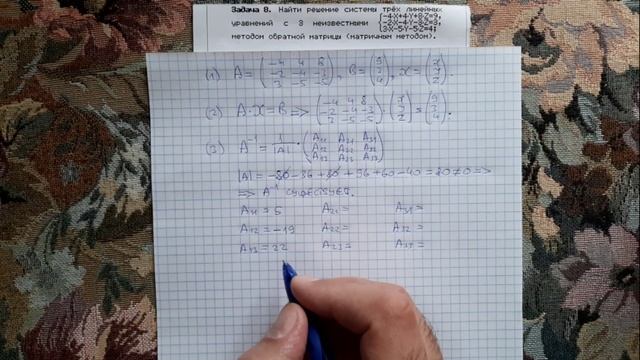 Задача 8. Найти решение системы трёх линейных
уравнений с 3 неизвестными {-4X+4Y+8Z=9,
{-2X-4Y-3Z=3,
{3X-5Y-5Z=4;
методом обратной матрицы (матричным методом).
(1) A = (-4 4 8
-2 -4 -3
3 -5 -5), B = (9
3
4), X = (x
y
z).
(2) A·X=B => (-4 4 8
-2 -4 -3
3 -5 -5)·(x
y
z) = (9
3
4).
(3) A⁻¹ = 1/|A| · (A₁₁ A₂₁ A₃₁
A₁₂ A₂₂ A₃₂
A₁₃ A₂₃ A₃₃)
|A| = -80-36+80+96+60-40=80≠0 =>
=> A⁻¹ существует.
A₁₁ = 5 A₂₁ = A₃₁ =
A₁₂ = -19 A₂₂ = A₃₂ =
A₁₃ = 22 A₂₃ = A₃₃ =